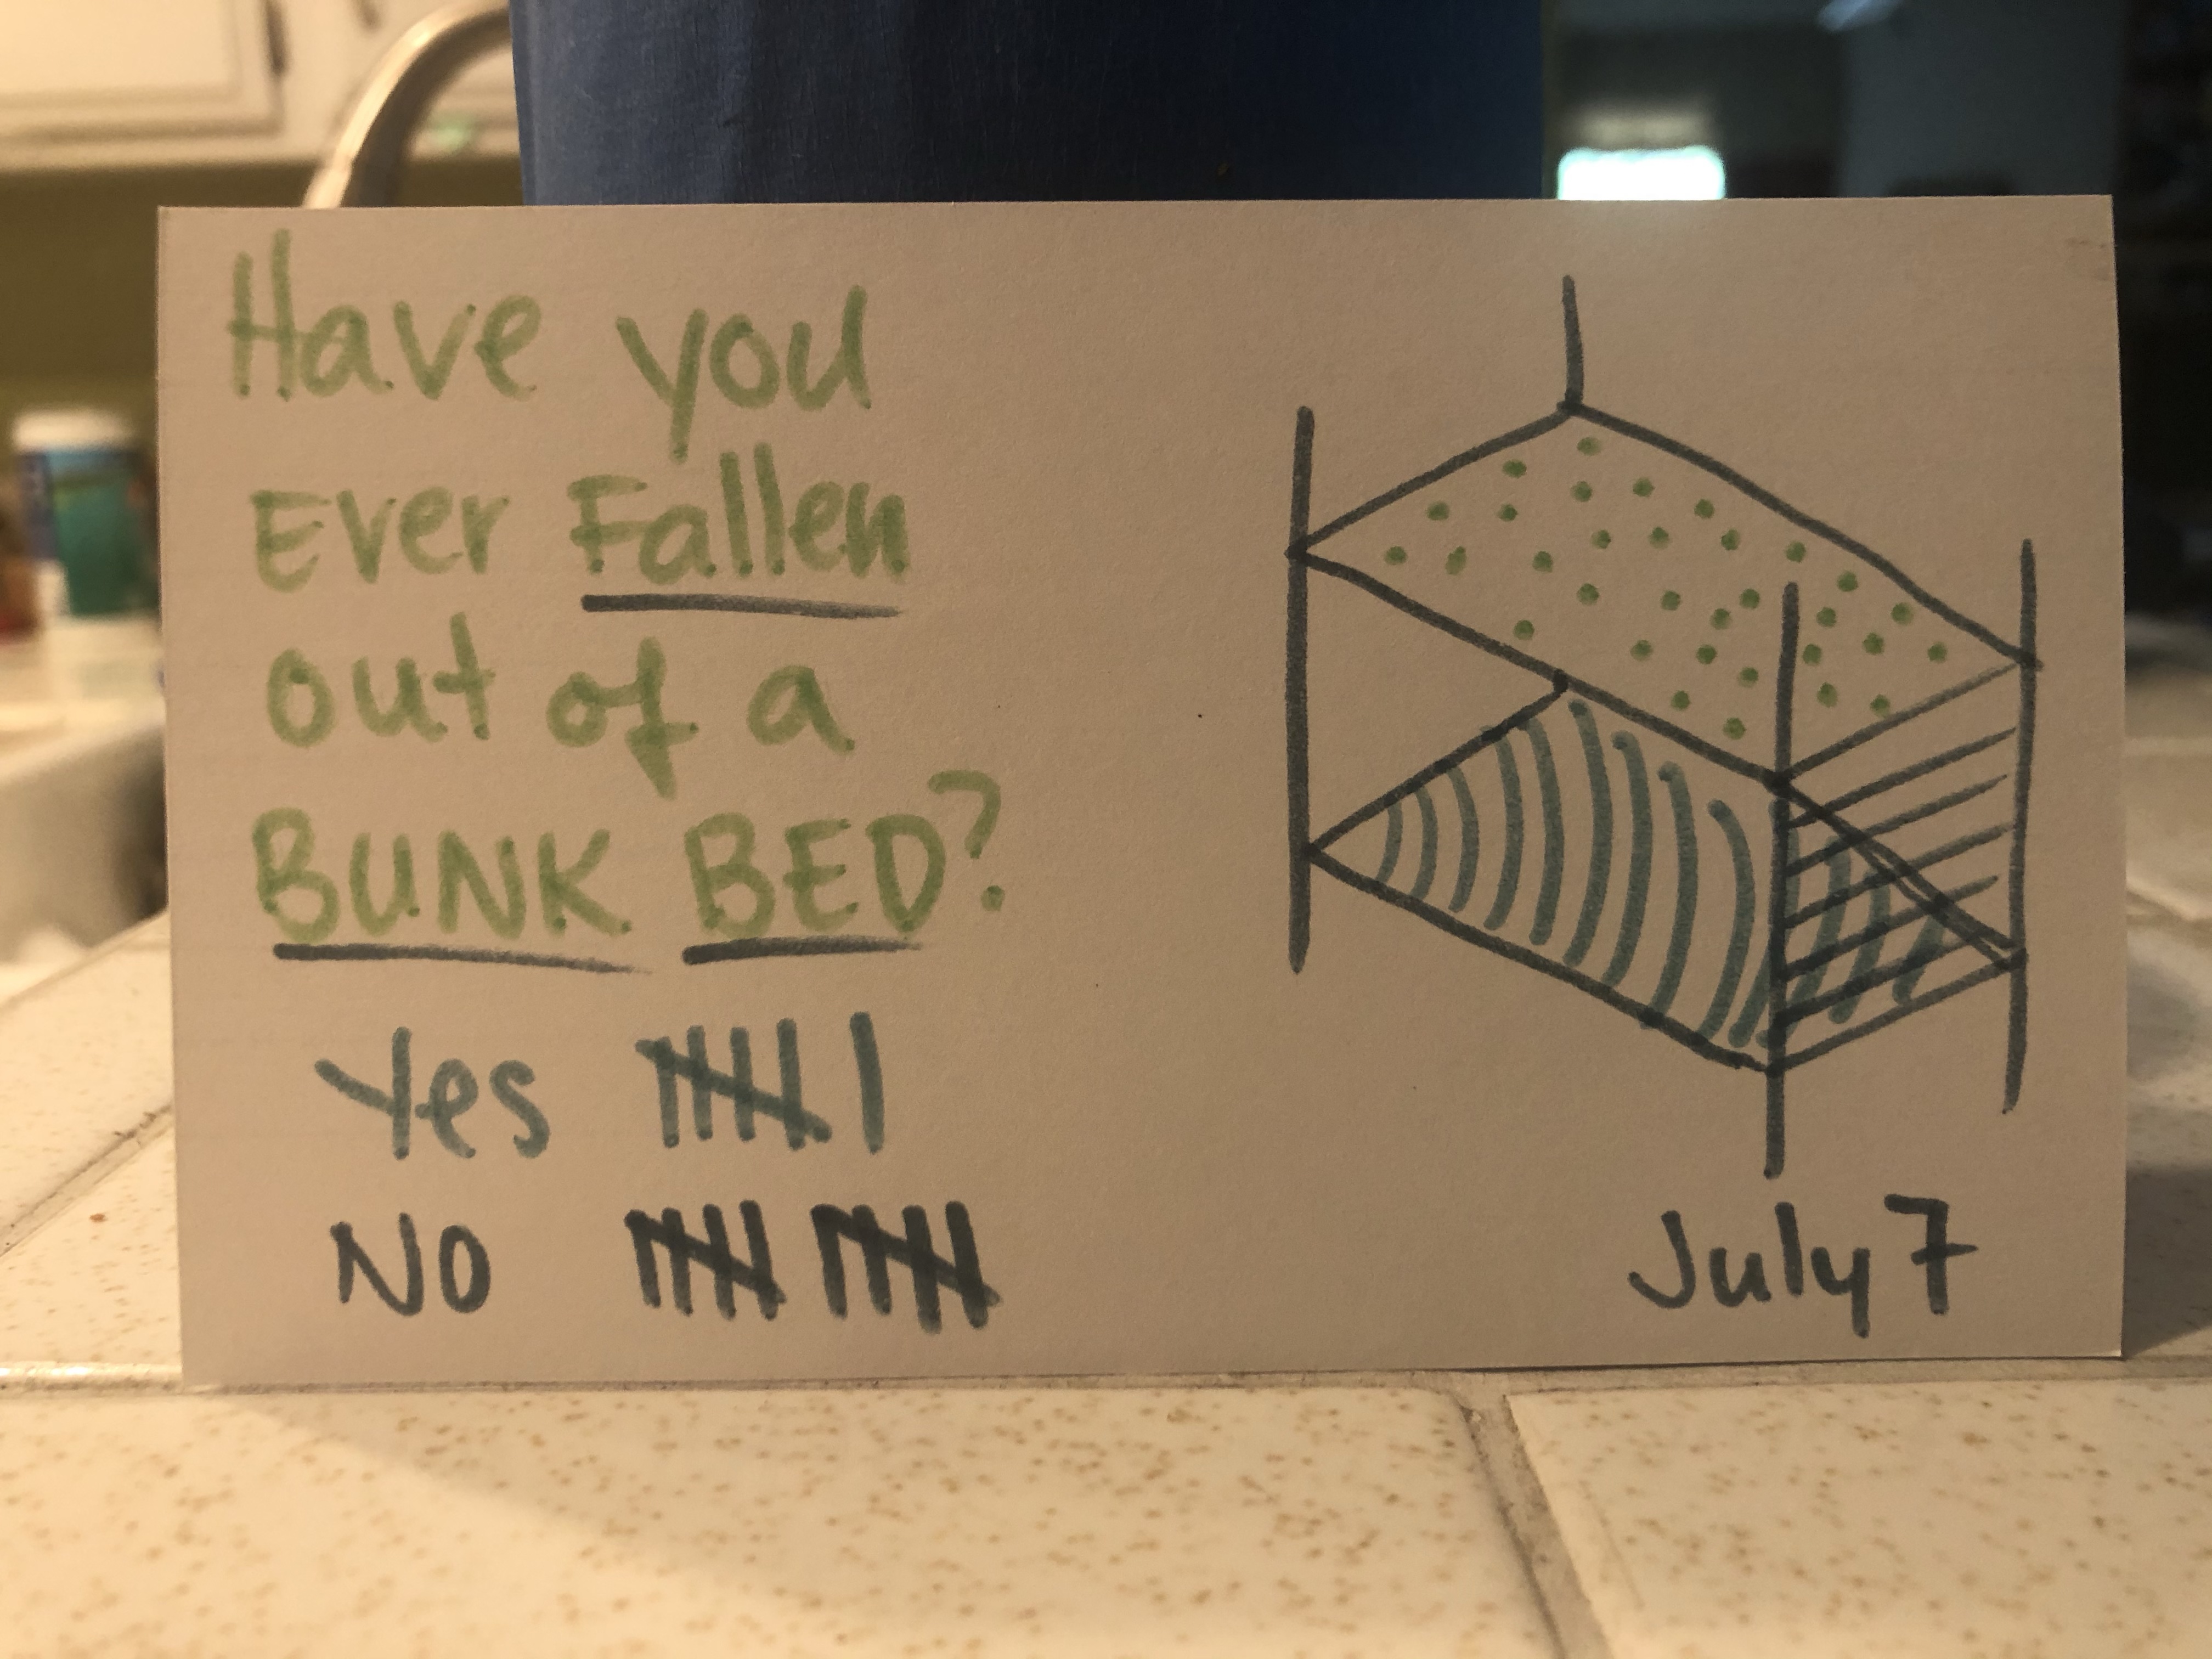 Have you
Ever Fallen
out of a
BUNK BED?
Yes 𝍸 |
No 𝍸 𝍸
July 7